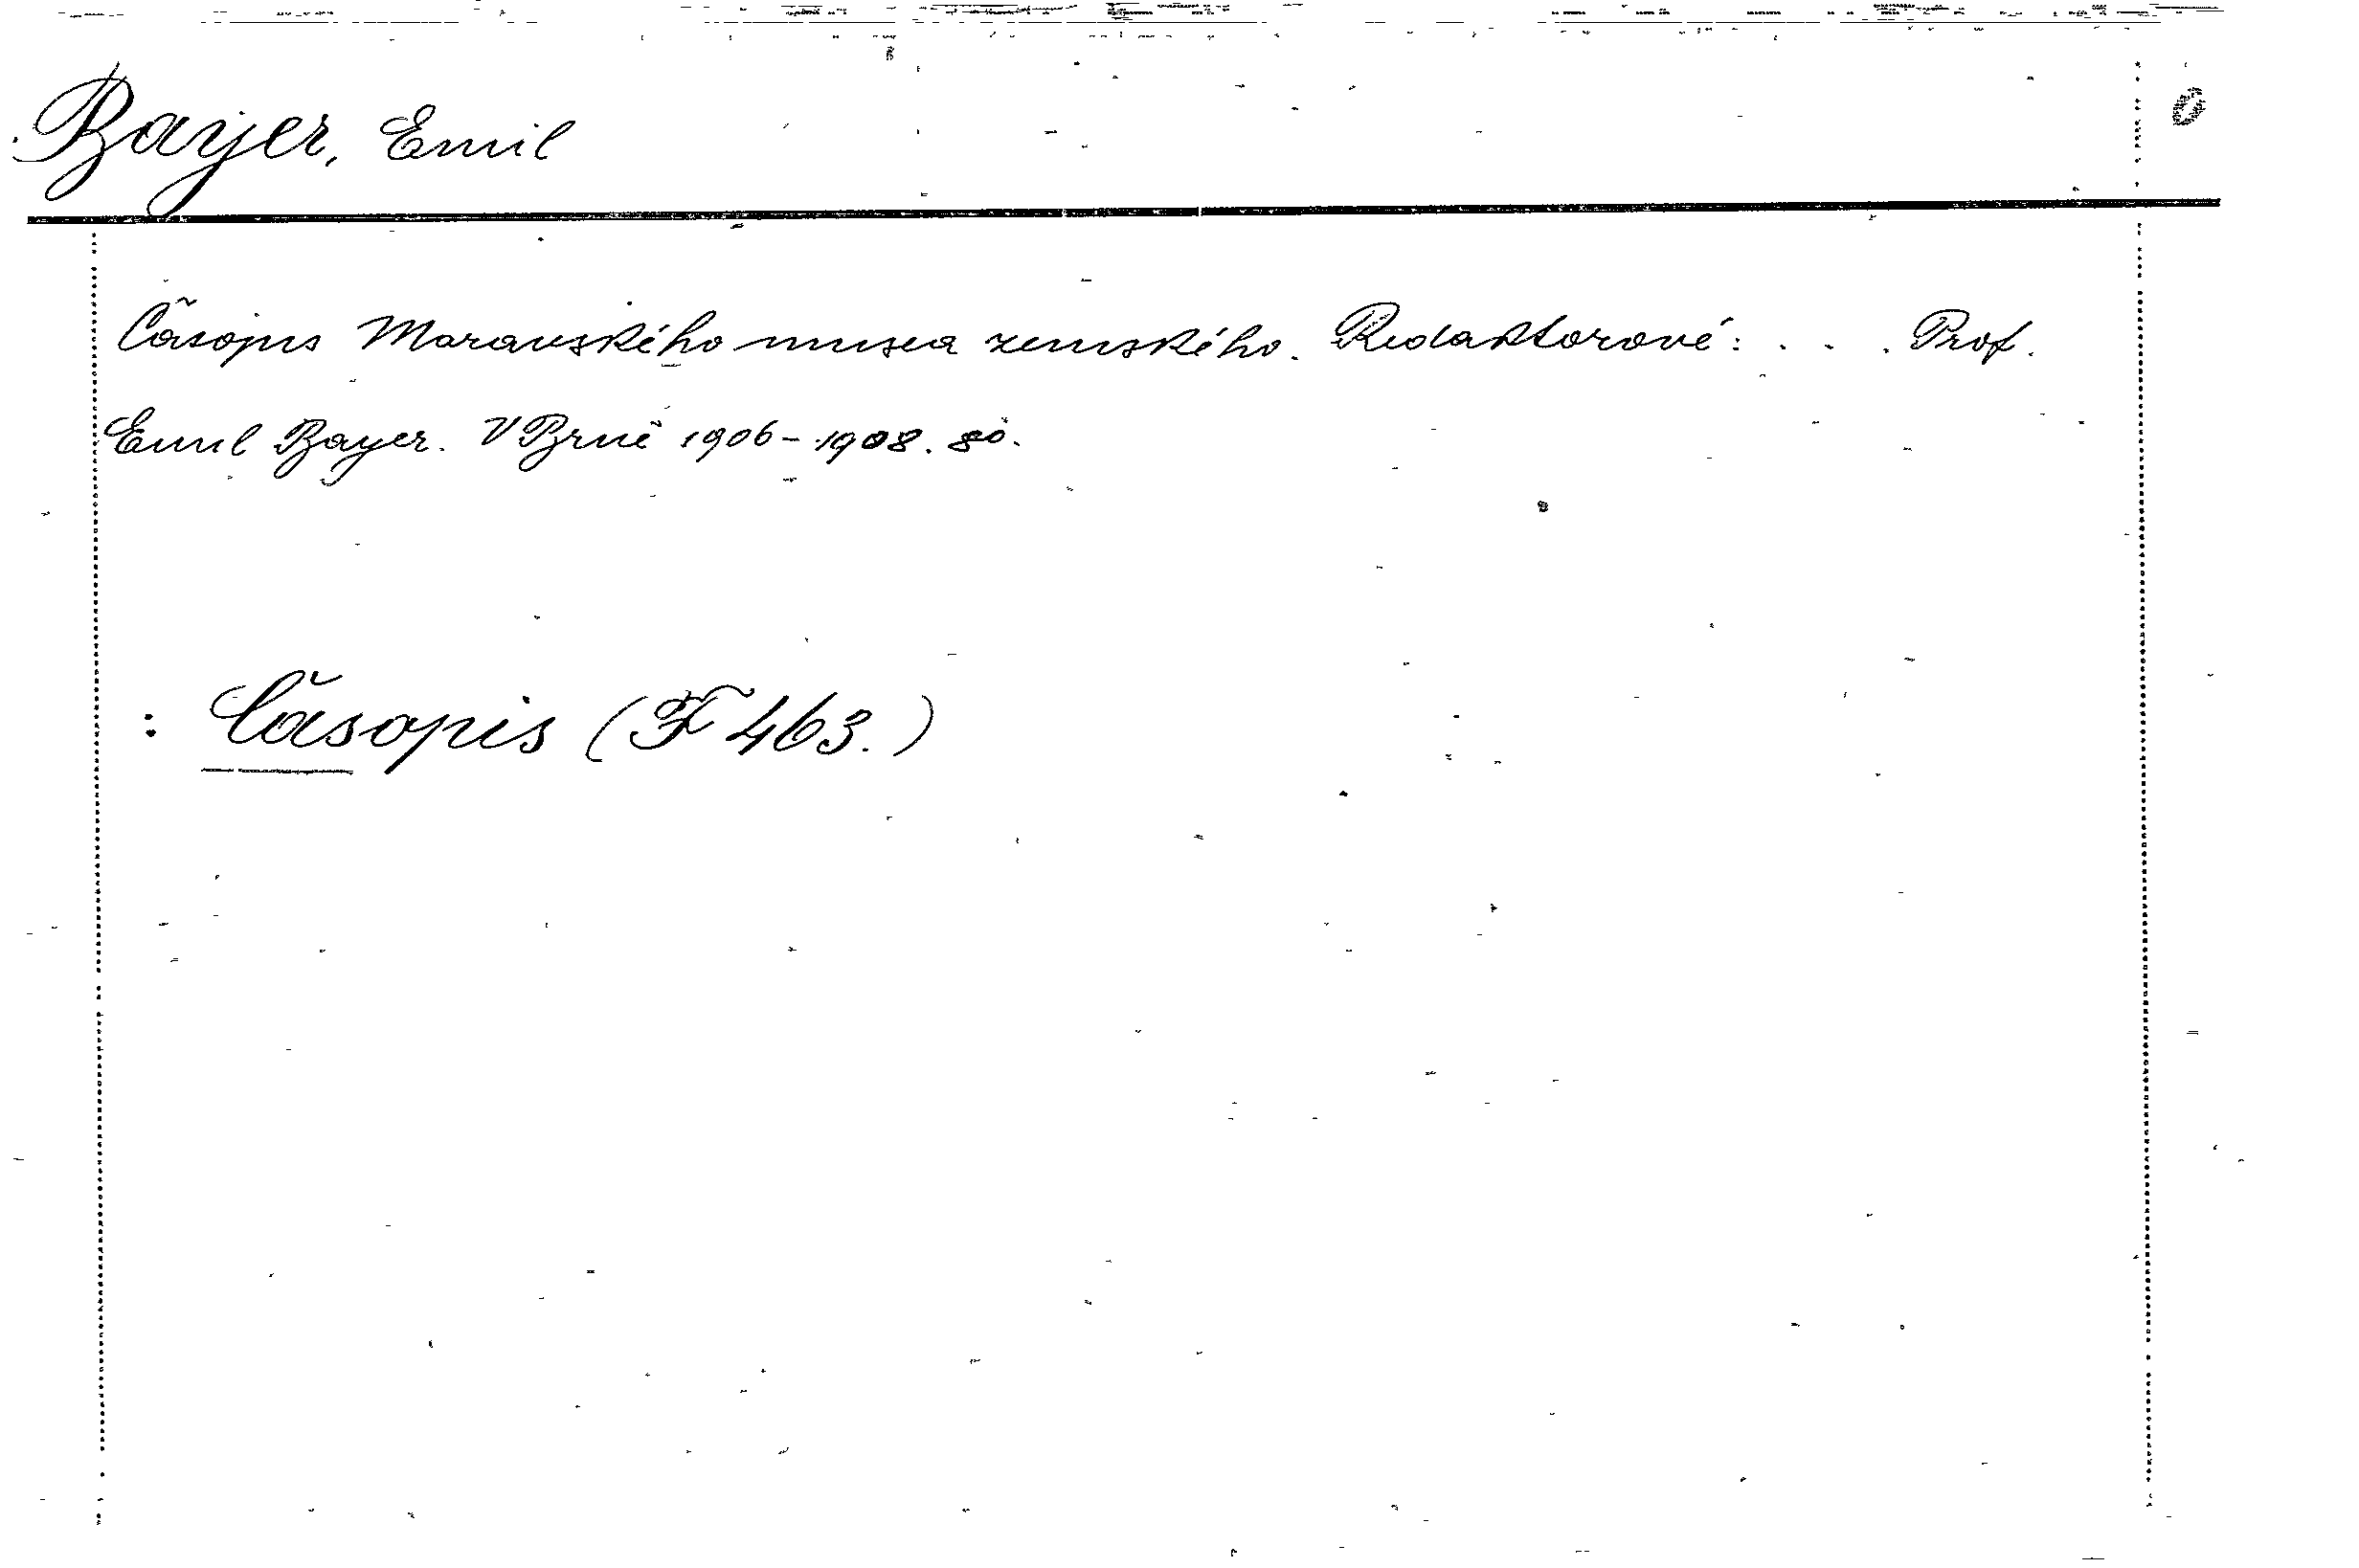 Bayer, Emil
Časopis Moravského musea zemského. Redaktorové: . . . Prof.
Emil Bayer. V Brně 1906-1908. 8º.
: Časopis (F 463.)